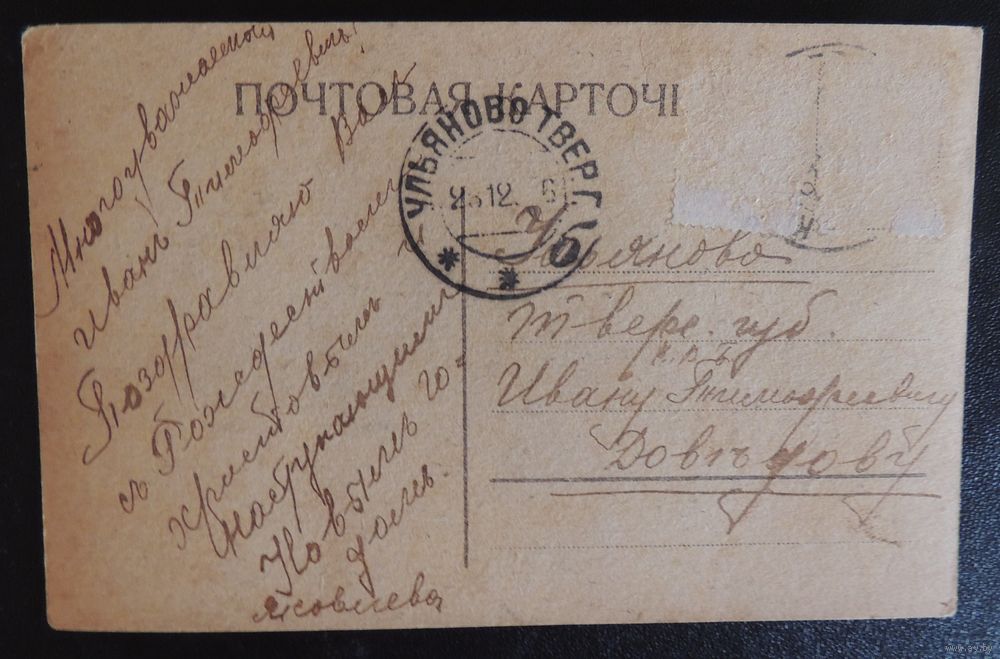 ПОЧТОВАЯ КАРТОЧК
УЛЬЯНОВО ТВЕР. Г.
12
б
Многоуважаемый
Иванъ Тимофеевичъ!
Поздравляю Васъ
съ Рождествомъ
Христовымъ и
Наступающимъ
Новымъ го=
домъ.
Яковлева
Ульяново
Тверс. губ.
Ивану Тимофеевичу
Довѣдову
www.ay.by